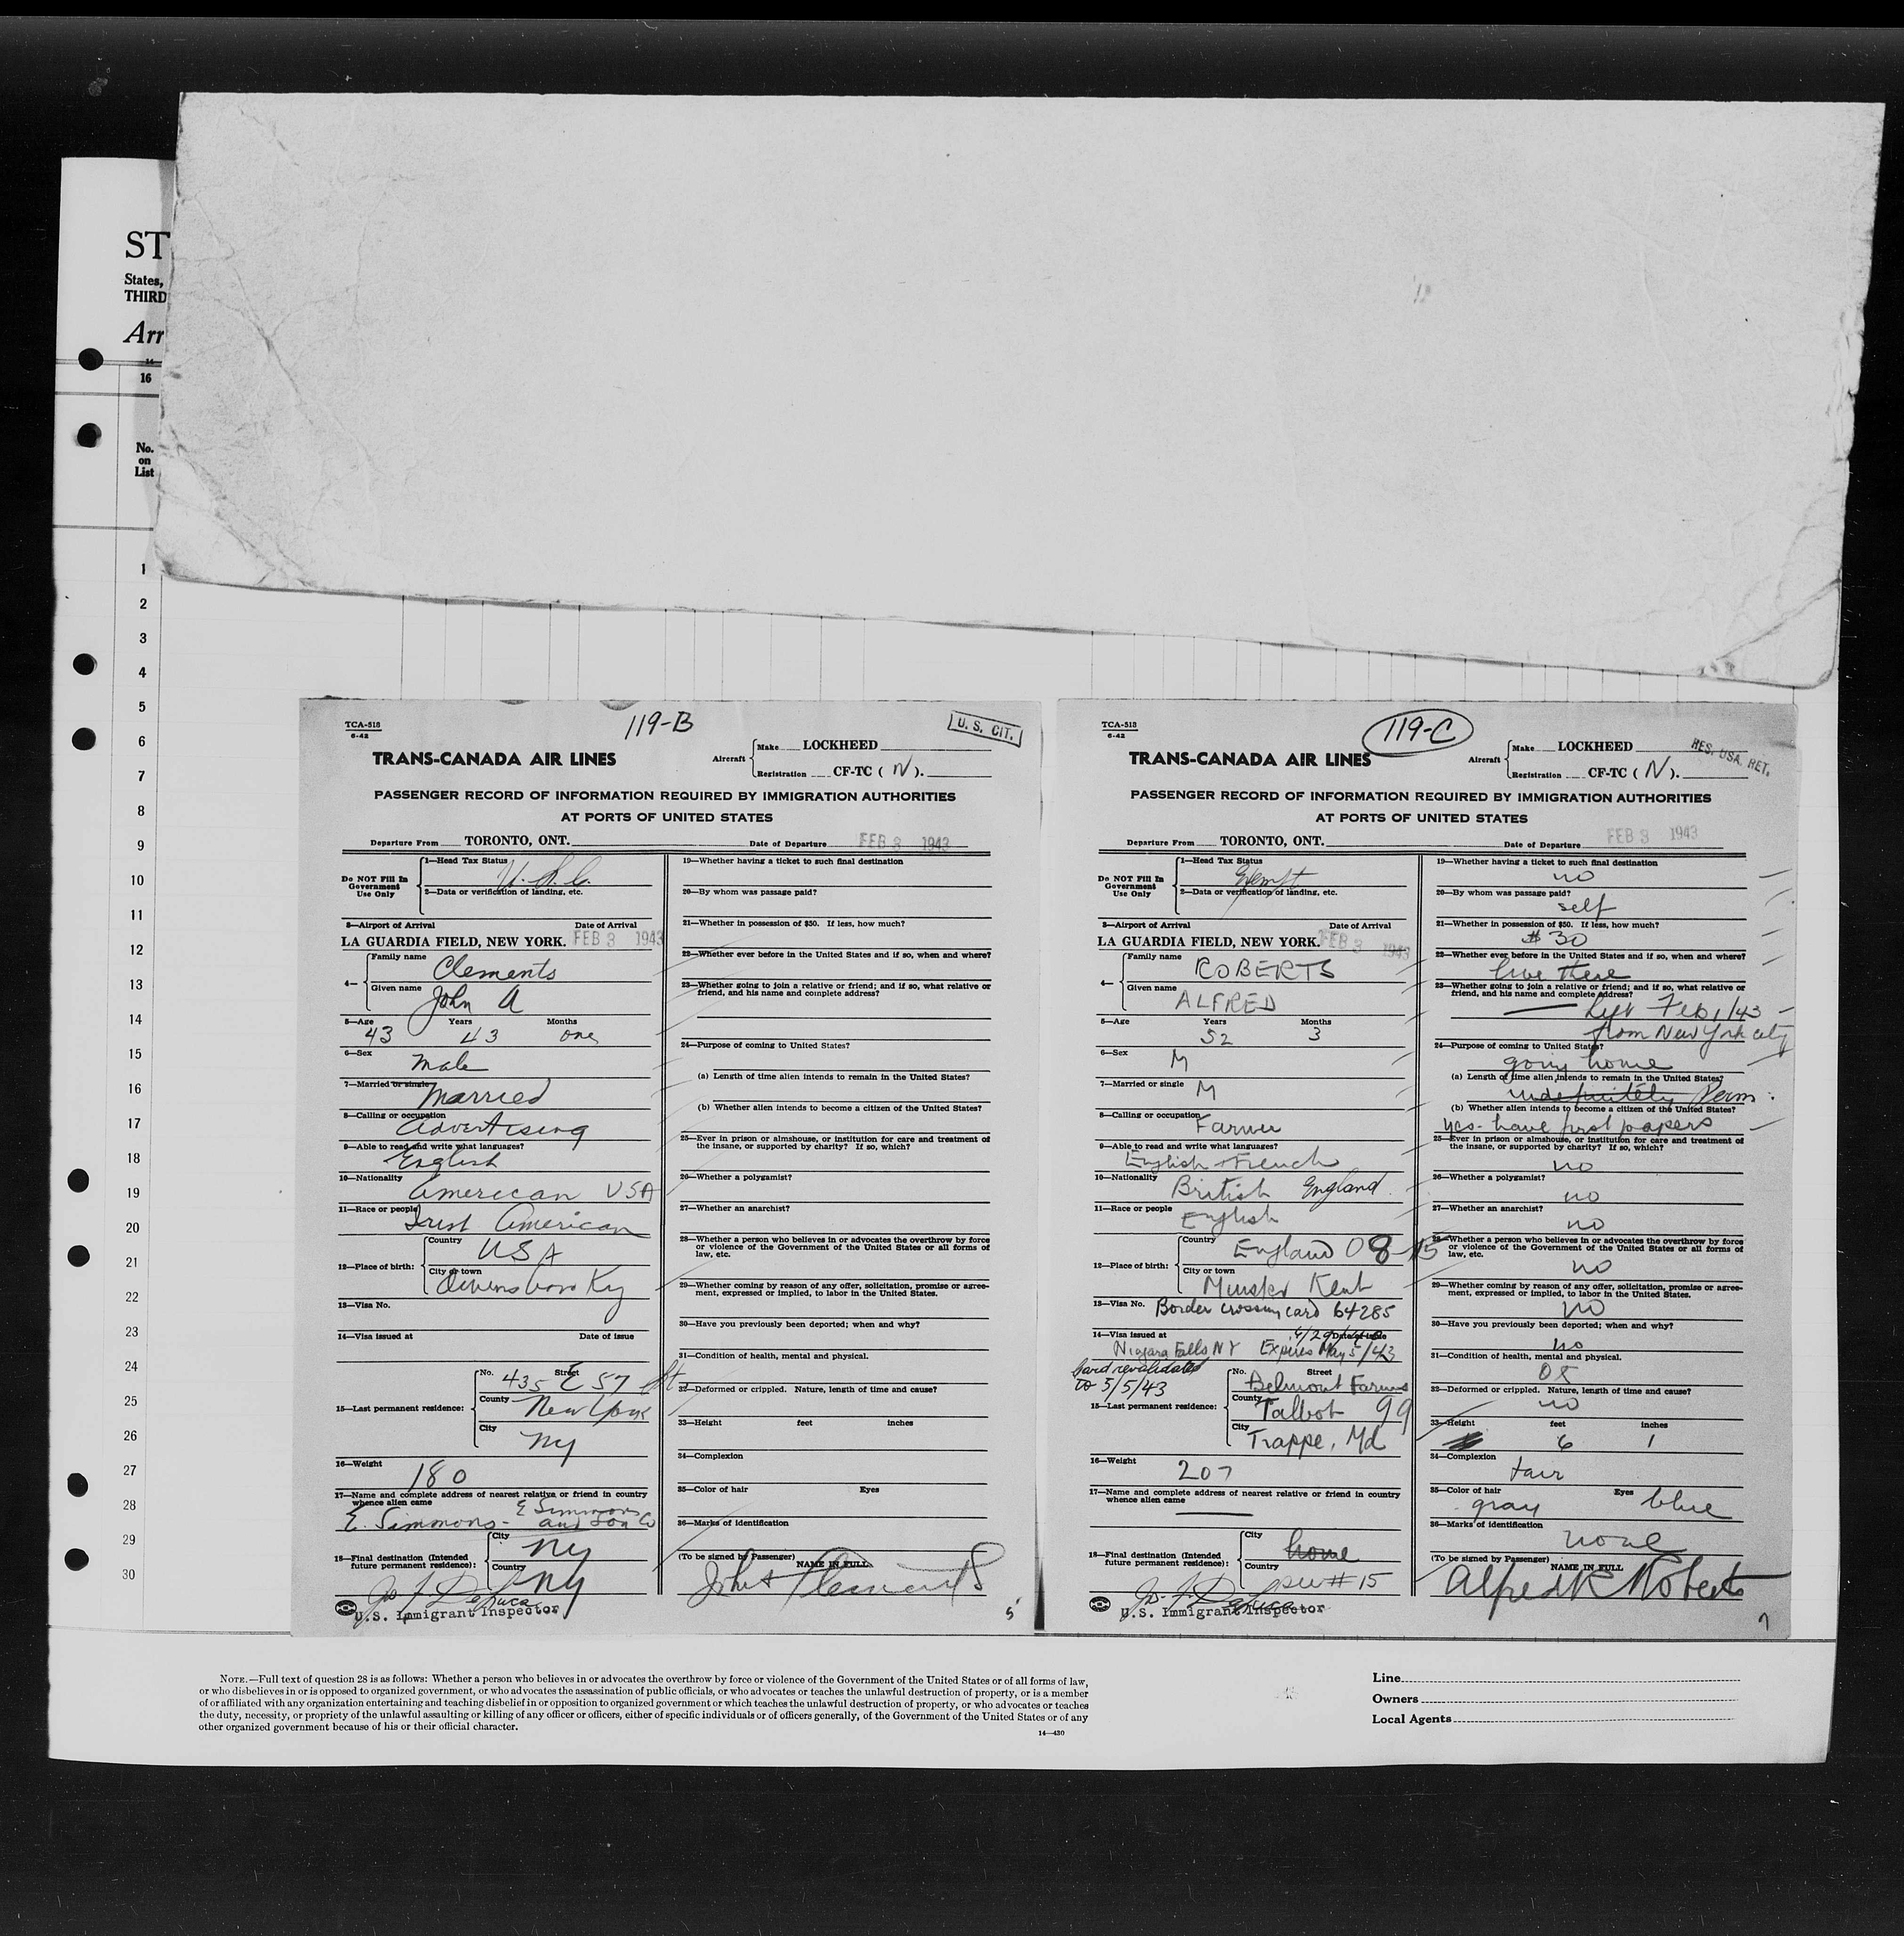 ST
States,
THIRD
Arr
16
No.
on
List
1
2
3
4
5
6
7
8
9
10
11
12
13
14
15
16
17
18
19
20
21
22
23
24
25
26
27
28
29
30
TCA-518
6-42
119-B
U. S. CIT.
TRANS-CANADA AIR LINES
Aircraft
Make LOCKHEED
Registration CF-TC (N).
PASSENGER RECORD OF INFORMATION REQUIRED BY IMMIGRATION AUTHORITIES
AT PORTS OF UNITED STATES
Departure From TORONTO, ONT. Date of Departure FEB 3 1943
Do NOT Fill In
Government
Use Only
1—Head Tax Status
2—Data or verification of landing, etc.
3—Airport of Arrival Date of Arrival
LA GUARDIA FIELD, NEW YORK. FEB 3 1943
4—
Family name Clements
Given name John A
5—Age Years Months
43 43 one
6—Sex
Male
7—Married or single
Married
8—Calling or occupation
Advertising
9—Able to read and write what languages?
English
10—Nationality
American USA
11—Race or people
Irish American
12—Place of birth:
Country
USA
City or town
Owensboro Ky
13—Visa No.
14—Visa issued at Date of issue
15—Last permanent residence:
No. Street
435 E 57 St
County New York
City NY
16—Weight
180
17—Name and complete address of nearest relative or friend in country
whence alien came
E Simmons
E. Simmons - and Son Co
18—Final destination (Intended
future permanent residence):
City NY
Country NY
U.S. Immigrant Inspector
19—Whether having a ticket to such final destination
20—By whom was passage paid?
21—Whether in possession of $50. If less, how much?
22—Whether ever before in the United States and if so, when and where?
23—Whether going to join a relative or friend; and if so, what relative or
friend, and his name and complete address?
24—Purpose of coming to United States?
(a) Length of time alien intends to remain in the United States?
(b) Whether alien intends to become a citizen of the United States?
25—Ever in prison or almshouse, or institution for care and treatment of
the insane, or supported by charity? If so, which?
26—Whether a polygamist?
27—Whether an anarchist?
28—Whether a person who believes in or advocates the overthrow by force
or violence of the Government of the United States or all forms of
law, etc.
29—Whether coming by reason of any offer, solicitation, promise or agree-
ment, expressed or implied, to labor in the United States.
30—Have you previously been deported; when and why?
31—Condition of health, mental and physical.
32—Deformed or crippled. Nature, length of time and cause?
33—Height feet inches
34—Complexion
35—Color of hair Eyes
36—Marks of identification
(To be signed by Passenger) NAME IN FULL
John A Clements
5
TCA-518
6-42
119-C
RES. USA. RET.
TRANS-CANADA AIR LINES
Aircraft
Make LOCKHEED
Registration CF-TC (N).
PASSENGER RECORD OF INFORMATION REQUIRED BY IMMIGRATION AUTHORITIES
AT PORTS OF UNITED STATES
Departure From TORONTO, ONT. Date of Departure FEB 3 1943
Do NOT Fill In
Government
Use Only
1—Head Tax Status
Exempt
2—Data or verification of landing, etc.
3—Airport of Arrival Date of Arrival
LA GUARDIA FIELD, NEW YORK. FEB 3 1943
4—
Family name ROBERTS
Given name ALFRED
5—Age Years Months
52 3
6—Sex
M
7—Married or single
M
8—Calling or occupation
Farmer
9—Able to read and write what languages?
English French
10—Nationality
British England
11—Race or people
English
12—Place of birth:
Country
England 08-15
City or town
Minster Kent
13—Visa No. Border crossing card 64285
14—Visa issued at Date of issue
Niagara Falls NY Expires May 5/43
Card revalidated
to 5/5/43
15—Last permanent residence:
No. Street
Belmont Farms
County
Talbot 99
City
Trappe, Md
16—Weight
207
17—Name and complete address of nearest relative or friend in country
whence alien came
18—Final destination (Intended
future permanent residence):
City home
Country see # 15
U.S. Immigrant Inspector
19—Whether having a ticket to such final destination
no
20—By whom was passage paid?
self
21—Whether in possession of $50. If less, how much?
$ 30
22—Whether ever before in the United States and if so, when and where?
live there
23—Whether going to join a relative or friend; and if so, what relative or
friend, and his name and complete address?
left Feb 1/43
from New York city
24—Purpose of coming to United States?
going home
(a) Length of time alien intends to remain in the United States?
indefinitely Perm.
(b) Whether alien intends to become a citizen of the United States?
yes - have first papers
25—Ever in prison or almshouse, or institution for care and treatment of
the insane, or supported by charity? If so, which?
no
26—Whether a polygamist?
no
27—Whether an anarchist?
no
28—Whether a person who believes in or advocates the overthrow by force
or violence of the Government of the United States or all forms of
law, etc.
no
29—Whether coming by reason of any offer, solicitation, promise or agree-
ment, expressed or implied, to labor in the United States.
no
30—Have you previously been deported; when and why?
no
31—Condition of health, mental and physical.
OK
32—Deformed or crippled. Nature, length of time and cause?
no
33—Height feet inches
6 1
34—Complexion
fair
35—Color of hair Eyes
gray blue
36—Marks of identification
none
(To be signed by Passenger) NAME IN FULL
Alfred R Roberts
7
NOTE.—Full text of question 28 is as follows: Whether a person who believes in or advocates the overthrow by force or violence of the Government of the United States or of all forms of law,
or who disbelieves in or is opposed to organized government, or who advocates the assassination of public officials, or who advocates or teaches the unlawful destruction of property, or is a member
of or affiliated with any organization entertaining and teaching disbelief in or opposition to organized government or which teaches the unlawful destruction of property, or who advocates or teaches
the duty, necessity, or propriety of the unlawful assaulting or killing of any officer or officers, either of specific individuals or of officers generally, of the Government of the United States or of any
other organized government because of his or their official character.
14—430
Line
Owners
Local Agents